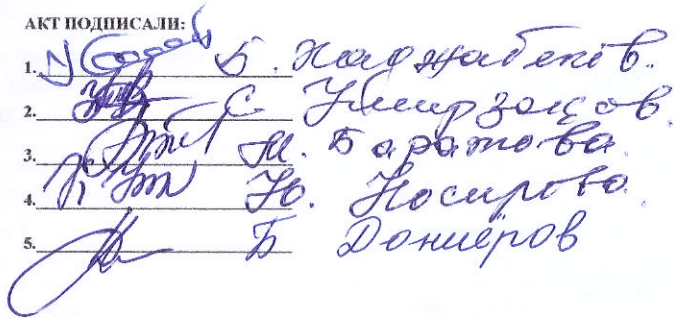 АКТ ПОДПИСАЛИ:
1. Б. Хаджабеков.
2. С. Умирзоқов.
3. М. Баратова.
4. Ю. Носирова.
5. Б Дониёров